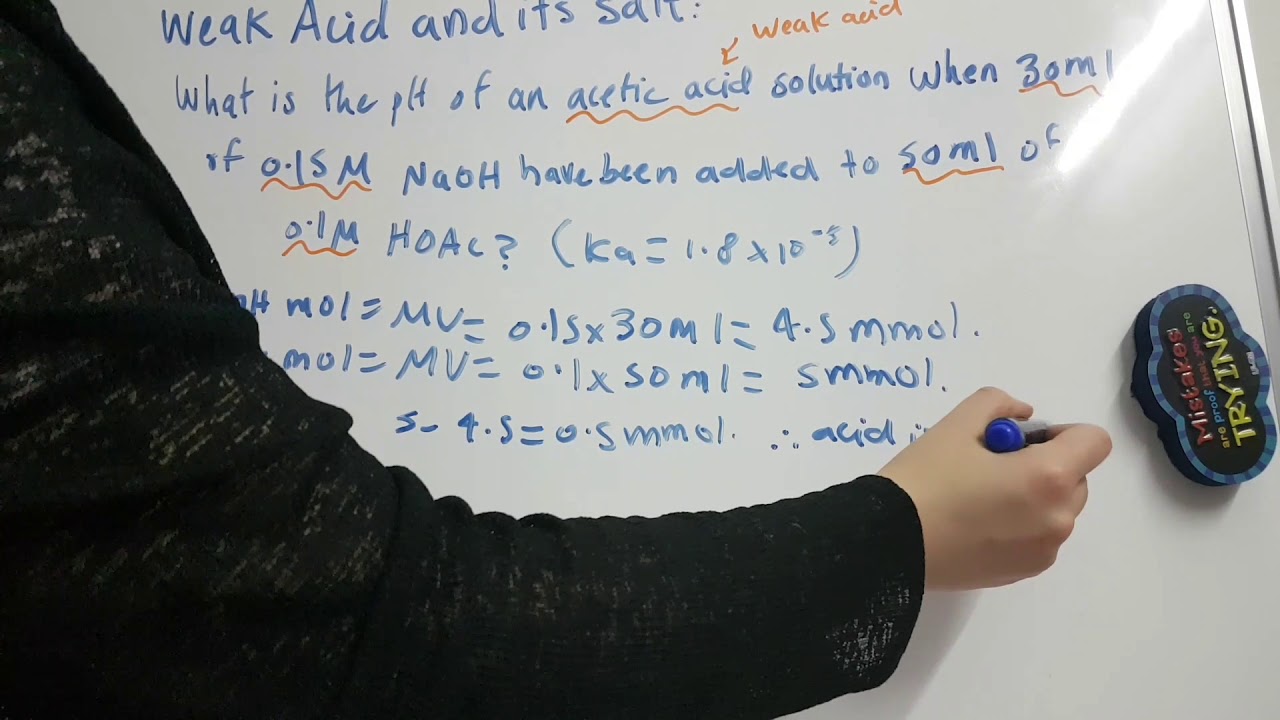 Weak Acid and its salt:
weak acid
What is the pH of an acetic acid solution when 30ml
of 0.15M NaOH have been added to 50ml of
0.1M HOAc? (Ka = 1.8 x 10⁻⁵)
mol = MV = 0.15x30ml = 4.5mmol.
mol = MV = 0.1x50ml = 5mmol.
5-4.5=0.5mmol. ∴ acid
Mistakes
are proof that you are
TRYING.